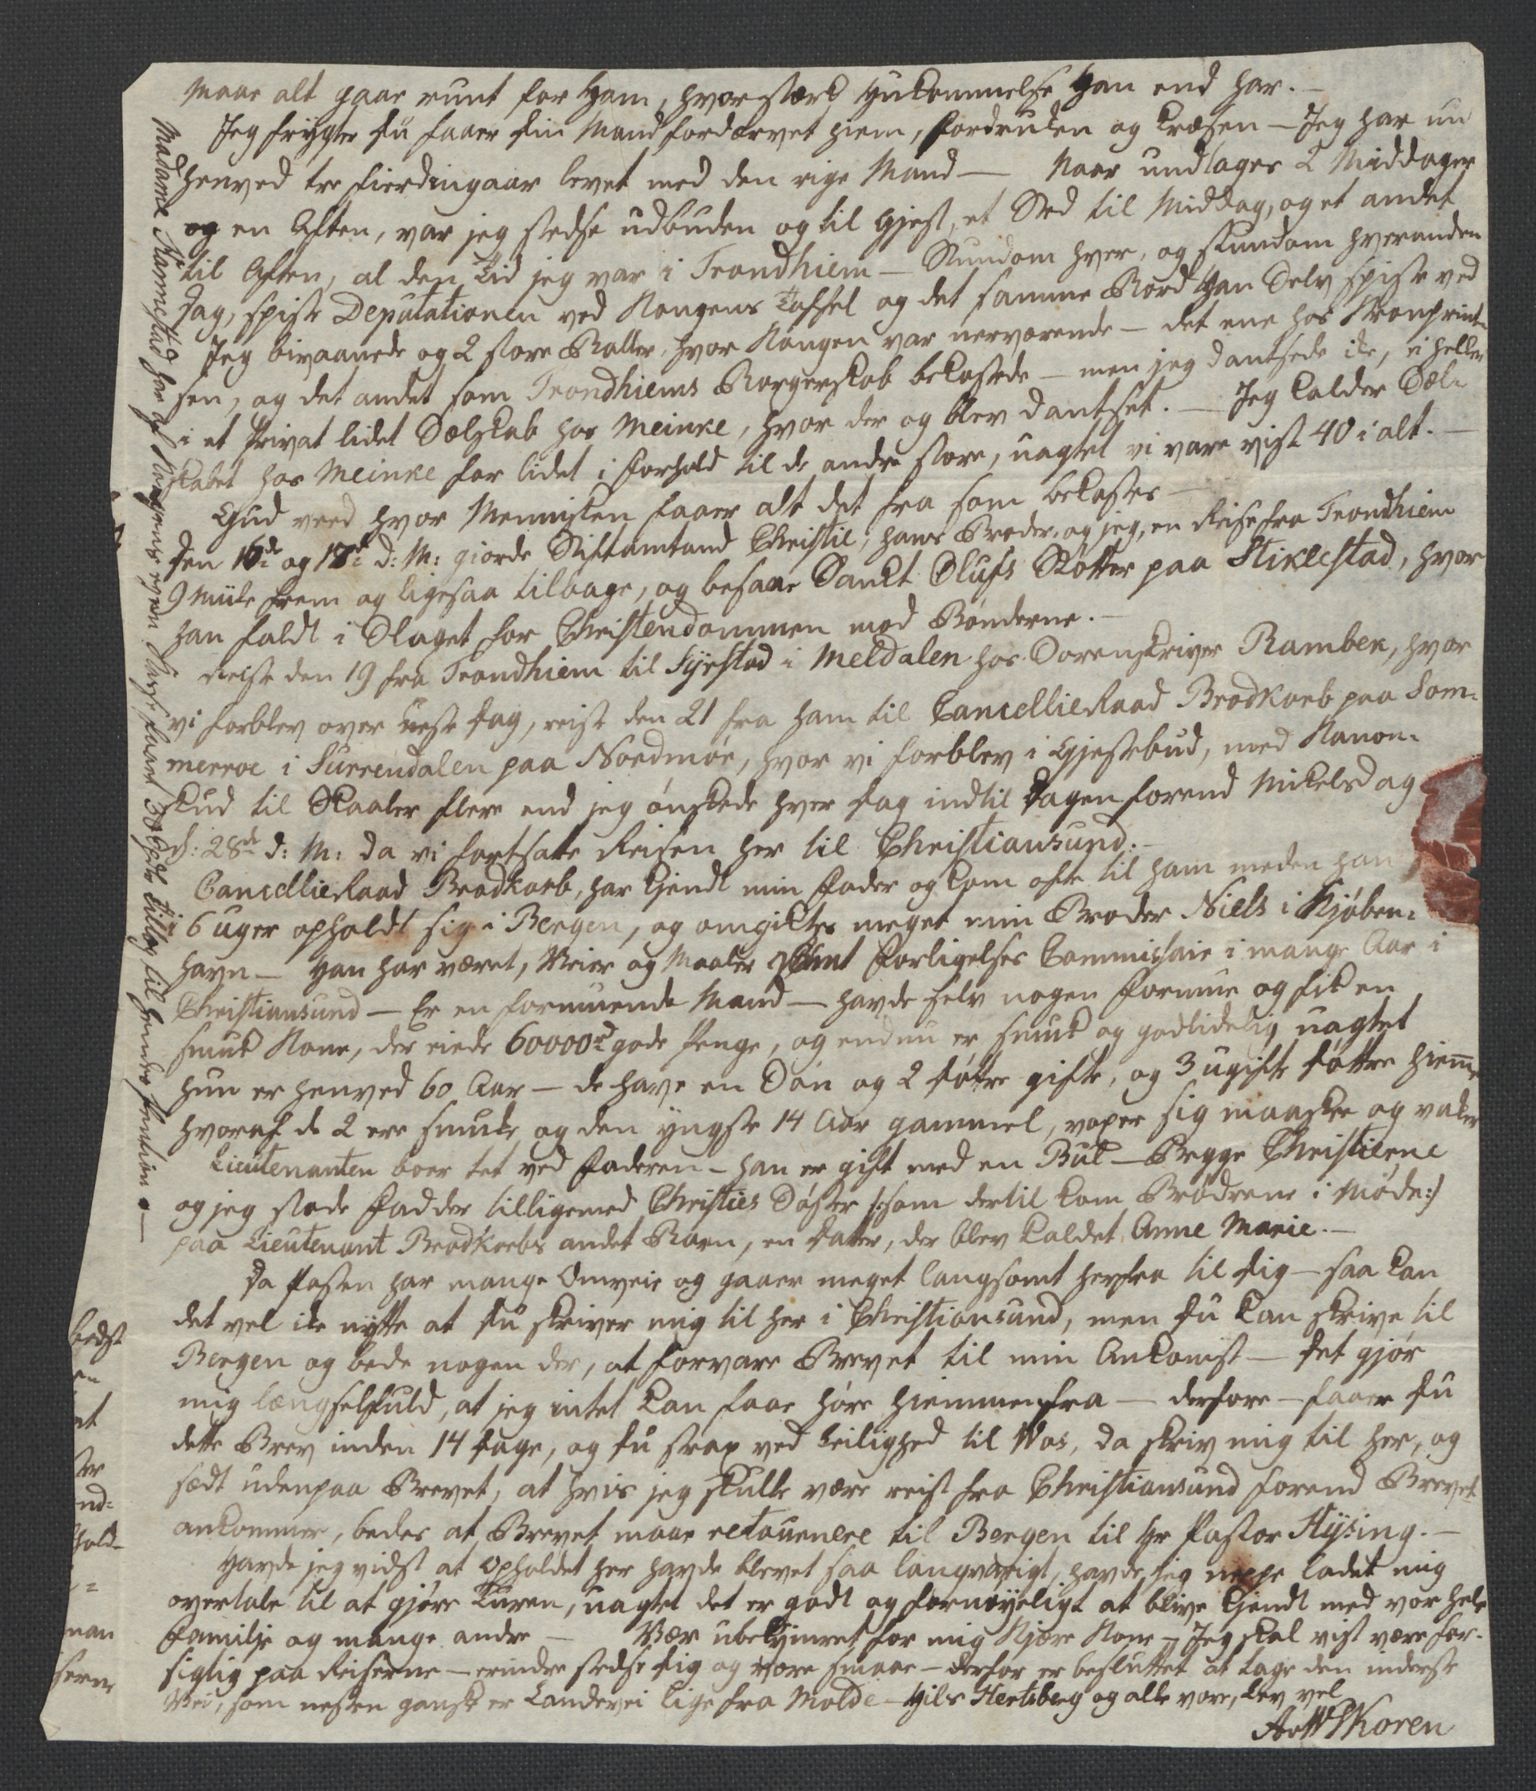 maae alt gaae runt for Ham, hvor stærk Hukommelse Han end har. -
Jeg frygter Du faaer Din Mand fordærvet hiem, fordruken og kræsen - Jeg har nu
henved tre fierdingaar levet med den rige Mand - Naar undtages 2 Middager
og en Aften, var jeg stedse udbuden og til Gjest, et Sted til Middag, og et andet
til Aften, al den Tid jeg var i Trondhiem - Stundom hver, og stundom hveranden
Dag, spiste Deputationen ved Kongens Taffel og det samme Bord Han Selv spiste ved
Jeg bivaanede og 2 store Baller, hvor Kongen var nerværende - det ene hos Kronprint-
sen, og det andet som Trondhiems Borgerskab bekostede - men jeg dantsede ike, ei heller
i et Privat lidet Selskab hos Meinke, hvor der og blev dantset. - Jeg kalder Sel-
skabet hos Meinke for lidet i forhold til de andre store, uagtet vi vare vist 40 i alt. -
Gud veed hvor Mennisken faaer alt det fra som bekostes -
Den 16de og 18de d: M: giorde Stiftamtmand Christie, hans Broder, og jeg, en Reise fra Trondhiem
9 Miile frem og ligesaa tilbage, og besaae Sankt Olufs Støtte paa Stiklestad, hvor
han faldt i Slaget for Christendommen mod Bønderne. -
Reiste den 19 fra Trondhiem til Syrstad i Meldalen hos Sorenskriver Rambek, hvor
vi forblev over neste Dag, reiste den 21 fra ham til CancellieRaad Brodkorb paa Som-
merroe i Surrendalen paa Nordmør, hvor vi forblev i Gjestebud, med Kanon-
skud til Skaaler flere end jeg ønskede hver Dag indtil Dagen forend Mikelsdag
d: 28de d: M: da vi fortsatte Reisen her til Christiansund. -
CancellieRaad Brodkorb, har kjendt min Fader og kom ofte til ham meden han
i 6 uger opholdt sig i Bergen, og omgiktes meget min Broder Niels i Kjøben-
havn - Han har været, Veier og Maaler samt Forligelses Commissair i mange Aar i
Christiansund - Er en formuende Mand - havde selv nogen formue og fik en
smuk Kone, der eiede 60000rd gode Penge, og endnu er smuk og godlidelig uagtet
hun er henved 60 Aar - de have en Søn og 2 Døttre gifte, og 3 ugifte Døttre hieme
hvoraf de 2 ere smukke og den yngste 14 Aar gammel, voxer sig maaskee og vakker
Lieutenanten boer tet ved Faderen - han er gift med en Bul - Begge Christierne
og jeg stode Faddere tilligemed Christies Søster /: som dertil kom Brødrene i Møde :/
paa Lieutenant Brodkorbs andet Barn, en Datter, der blev kaldet Anne Marie. -
Da Posten har mange Omveie og gaaer meget langsomt herfra til Dig - saa kan
det vel ike nytte at Du skriver mig til her i Christiansund, men Du kan skrive til
Bergen og bede nogen der, at forvare Brevet til min Ankomst - Det gjør
mig længselfuld, at jeg intet kan faae høre hiemmenfra - derfore - faaer Du
dette Brev inden 14 Dage, og Du strax ved Leilighed til Vos, da skriv mig til her, og
sædt udenpaa Brevet, at hvis jeg skulle være reist fra Christiansund forend Brevet
ankommer, bedes at Brevet maae retournere til Bergen til Hr Pastor Hysing. -
Havde jeg vidst at Opholdet her havde blevet saa langvarigt, havde jeg neppe ladet mig
overtale til at gjøre Turen, uagtet det er godt og fornøyeligt at blive kjendt med vor hele
Familje og mange andre - Vær ubekymret for mig Kjære Kone - Jeg skal vist være for-
sigtig paa Reiserne - erindre stedse Dig og vore smaae - derfor er besluttet at tage den inderste
Vei, som nesten ganske er Landevei lige fra Molde - Hils Hertzberg og alle vore, Lev vel
A v W S Koren
Madame har af Kongens egen faaet til
bedst
en
at
ter
nd=
hold-
man
serne